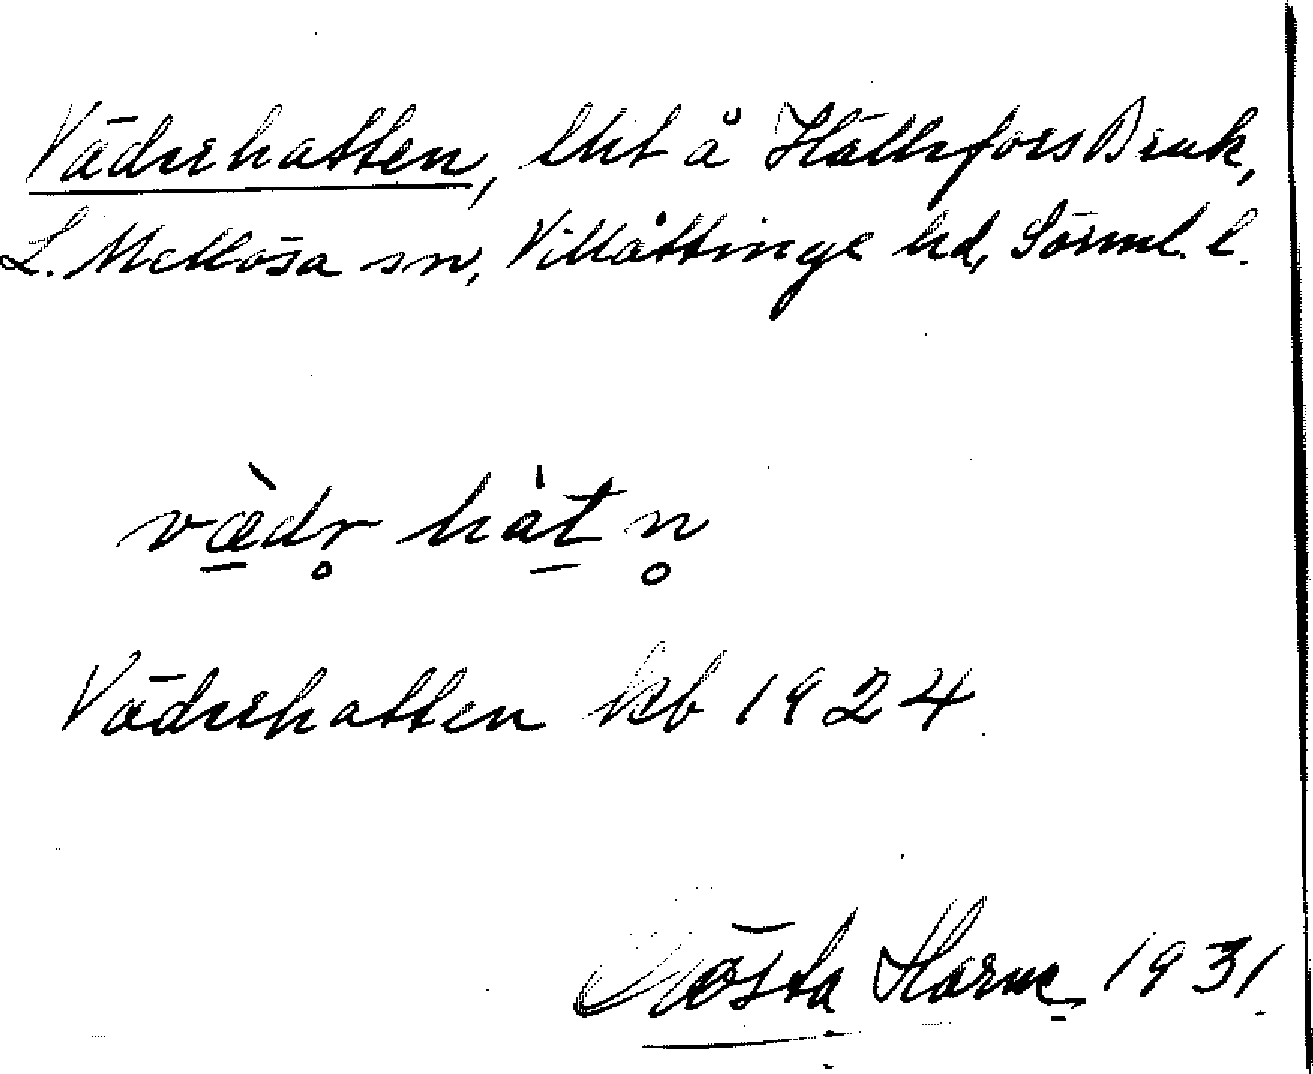 Väderhatten, lht å Hällefors Bruk,
L. Mellösa sn, Villåttinge hd, Sörml. l.
væ̀dr̥ hàt n̥
Väderhatten kb 1924
Gösta Harne 1931